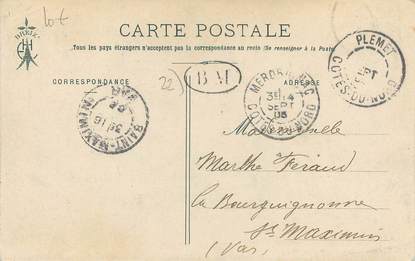 BREIZ
Lot
CARTE POSTALE
Tous les pays étrangers n'acceptent pas la correspondance au recto (Se renseigner à la Poste).
CORRESPONDANCE
22
BM
MERDRIGNAC
SEPT
05
COTES-DU-NORD
PLEMET
SEPT
COTES-DU-NORD
SAINT-MAXIMIN
VAR
Mademoiselle
Marthe Feraud
La Bourguignonne
St Maximin
(Var)